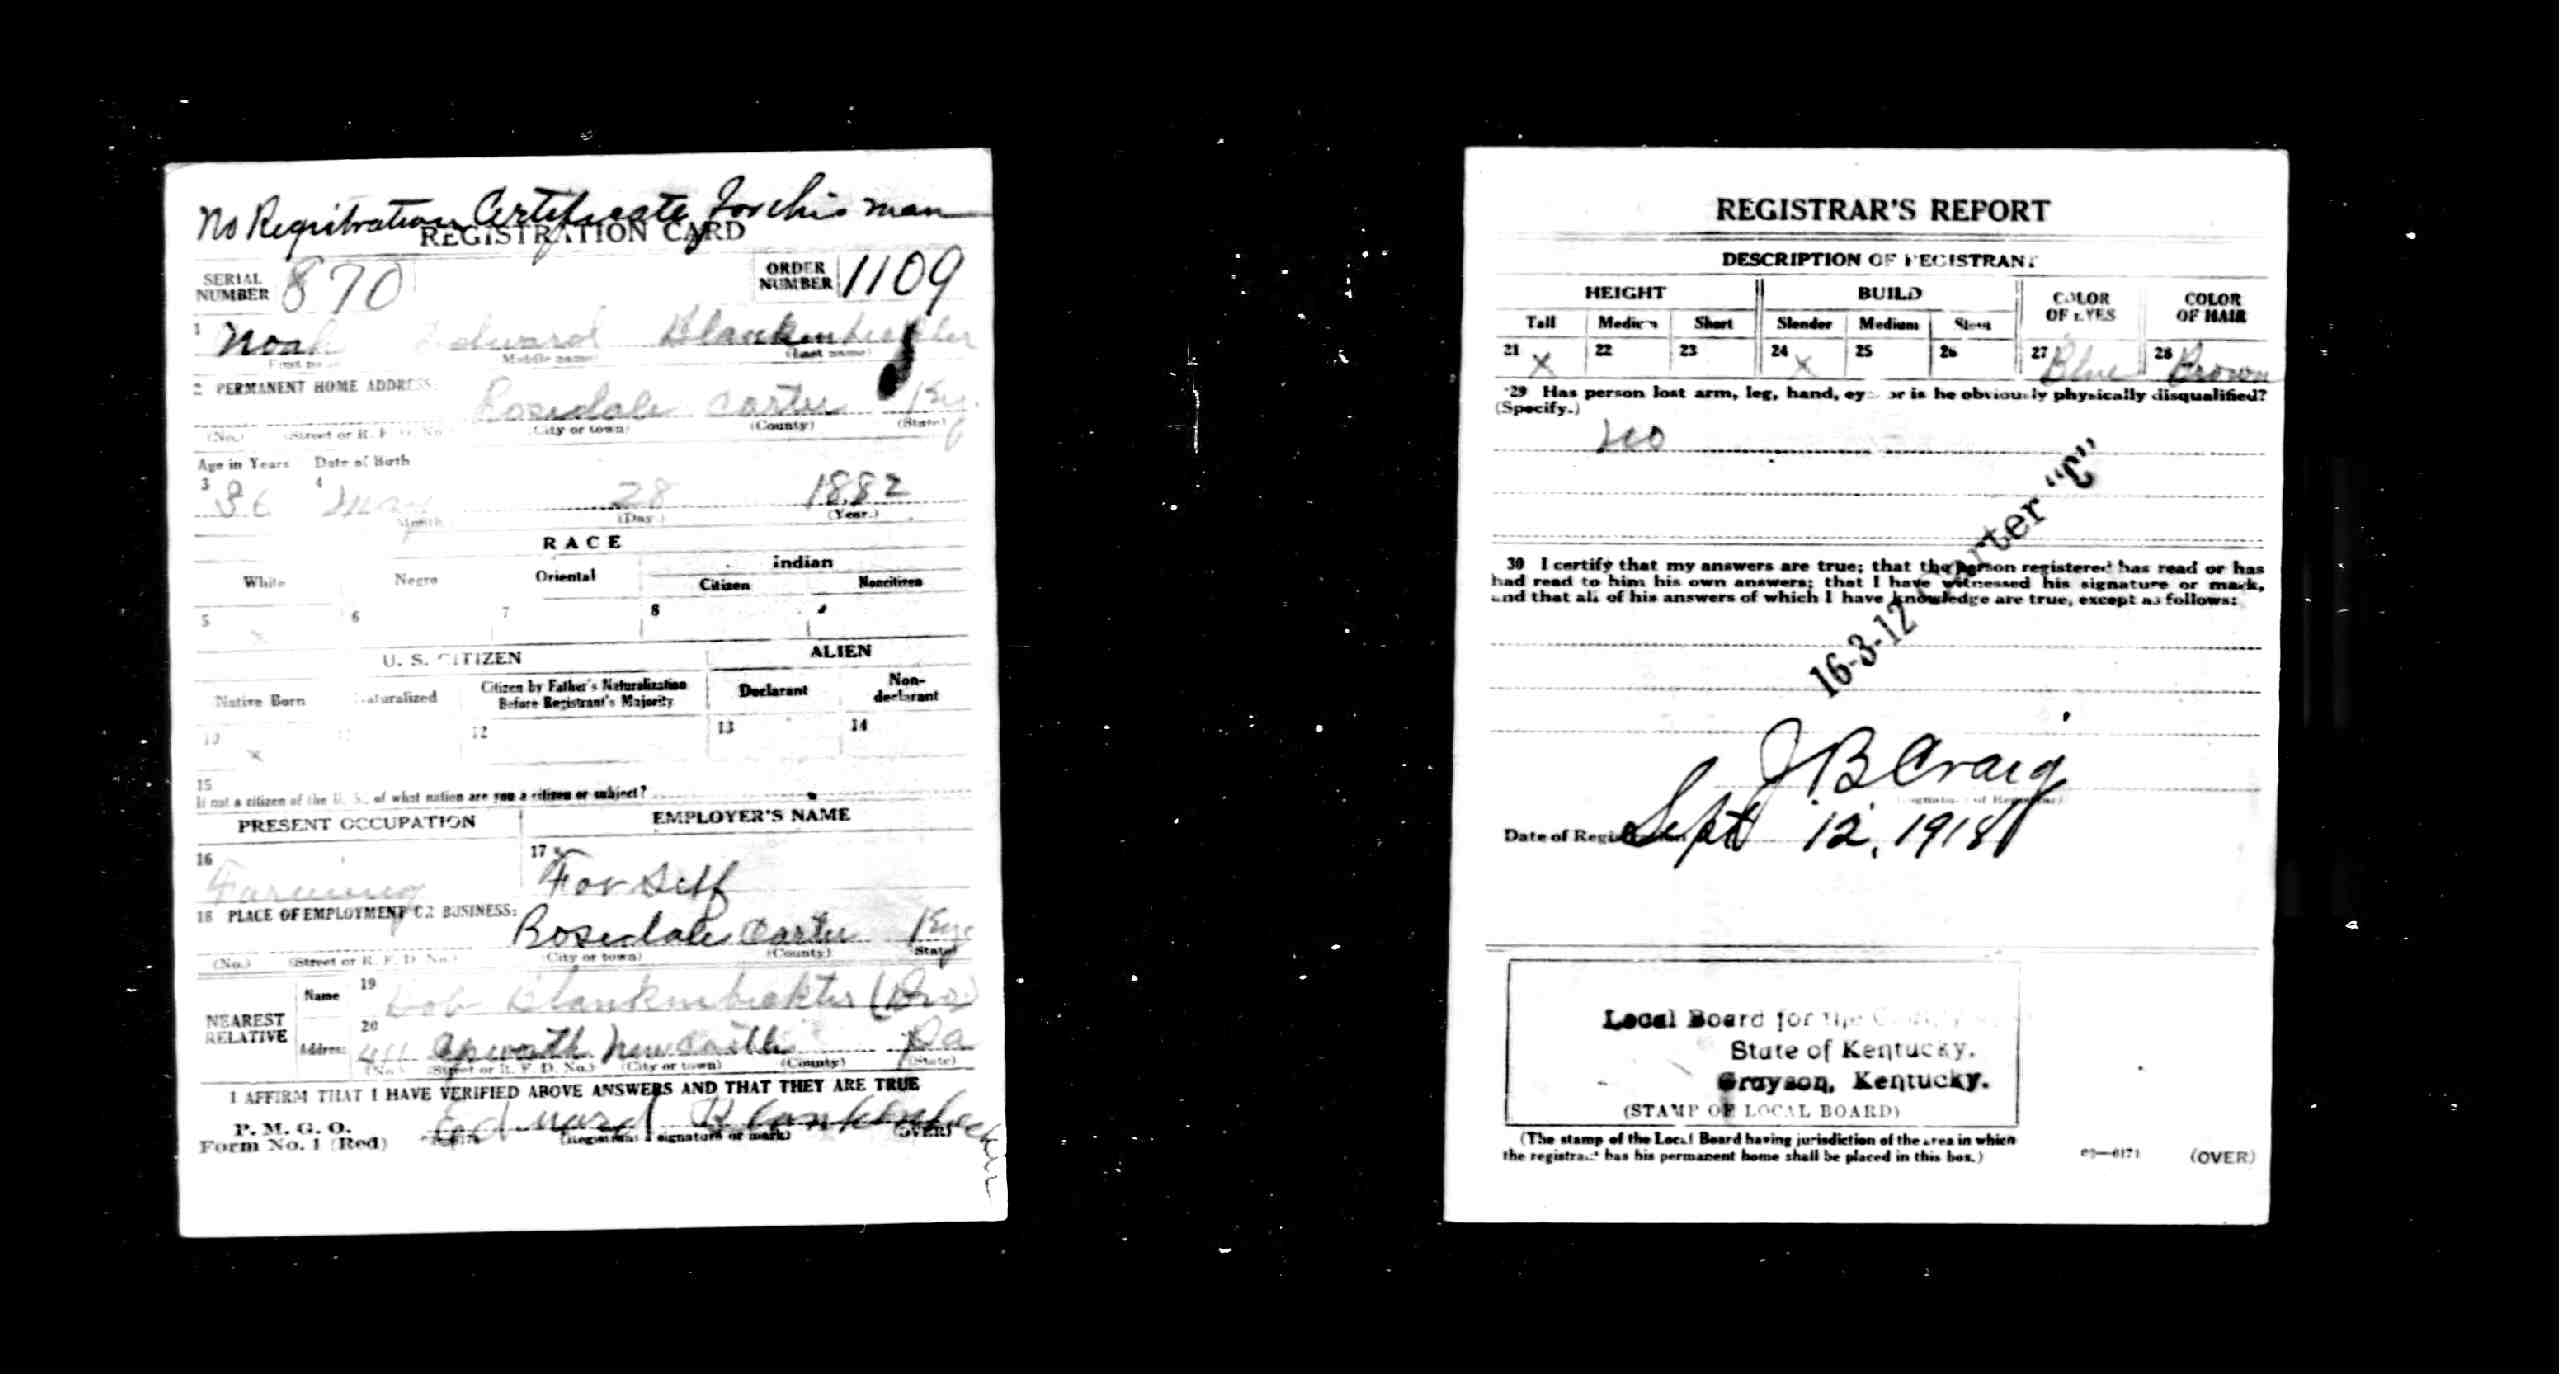 No Registration Certificate for this man
REGISTRATION CARD
SERIAL NUMBER 870 ORDER NUMBER 1109
1 Noah Edward
(Middle name) (Last name)
2 PERMANENT HOME ADDRESS:
Rosedale Carter Ky.
(No.) (Street or R. F. D. No.) (City or town) (County) (State)
Age in Years Date of Birth
3 36 4 May 28 1882
Month (Day.) (Year.)
RACE
White Negro Oriental Indian
Citizen Noncitizen
5 X 6 7 8
U. S. CITIZEN ALIEN
Native Born Naturalized Citizen by Father's Naturalization Before Registrant's Majority Declarant Non-declarant
10 X 12 13 14
15
If not a citizen of the U. S., of what nation are you a citizen or subject?
PRESENT OCCUPATION EMPLOYER'S NAME
16 Farming 17 For Self
18 PLACE OF EMPLOYMENT OR BUSINESS:
Rosedale Carter Ky.
(No.) (Street or R. F. D. No.) (City or town) (County) (State)
NEAREST RELATIVE
Name 19 (Bro)
Address 20 411 Epworth New Castle Pa
(No.) (Street or R. F. D. No.) (City or town) (County) (State)
I AFFIRM THAT I HAVE VERIFIED ABOVE ANSWERS AND THAT THEY ARE TRUE
P. M. G. O.
Form No. 1 (Red) Edward
(Registrant's signature or mark) (OVER)
REGISTRAR'S REPORT
DESCRIPTION OF REGISTRANT
HEIGHT BUILD COLOR OF EYES COLOR OF HAIR
Tall Medium Short Slender Medium Stout
21 X 22 23 24 X 25 26 27 Blue 28 Brown
29 Has person lost arm, leg, hand, eye, or is he obviously physically disqualified?
(Specify.)
no
30 I certify that my answers are true; that the person registered has read or has
had read to him his own answers; that I have witnessed his signature or mark,
and that all of his answers of which I have knowledge are true, except as follows:
16-3-12 Carter "C"
J B Craig
(Signature of Registrar)
Date of Registration Sept 12, 1918
Local Board for the County
State of Kentucky.
Grayson, Kentucky.
(STAMP OF LOCAL BOARD)
(The stamp of the Local Board having jurisdiction of the area in which
the registrant has his permanent home shall be placed in this box.)
(OVER)